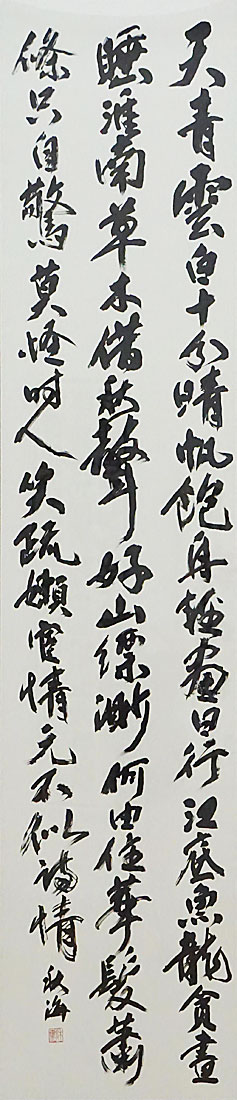 天青雲白十分晴帆飽舟輕盡日行江底魚龍貪晝
睡淮南草木借秋聲好山縹渺何由住華髮蕭
條只自驚莫怪時人笑疏嬾宦情元不似詩情 秋海